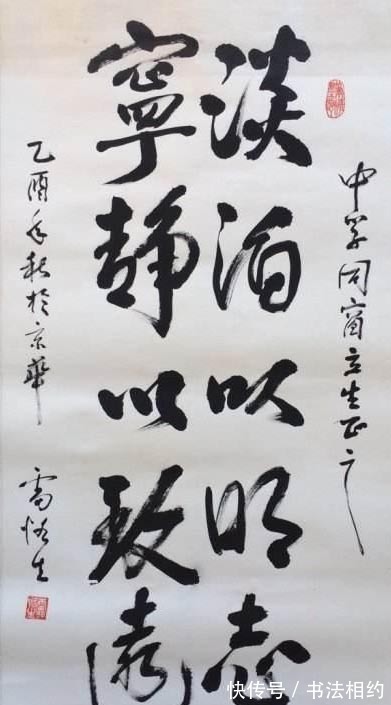 中学同窗立生正之
淡泊以明志
寧静以致遠
乙酉年秋於京華
雷恪生
快传号 / 书法相约